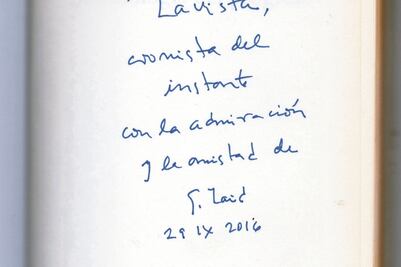 Lavista,
cronista del
instante
con la admiración
y la amistad de
G. Zaid
29 IX 2016